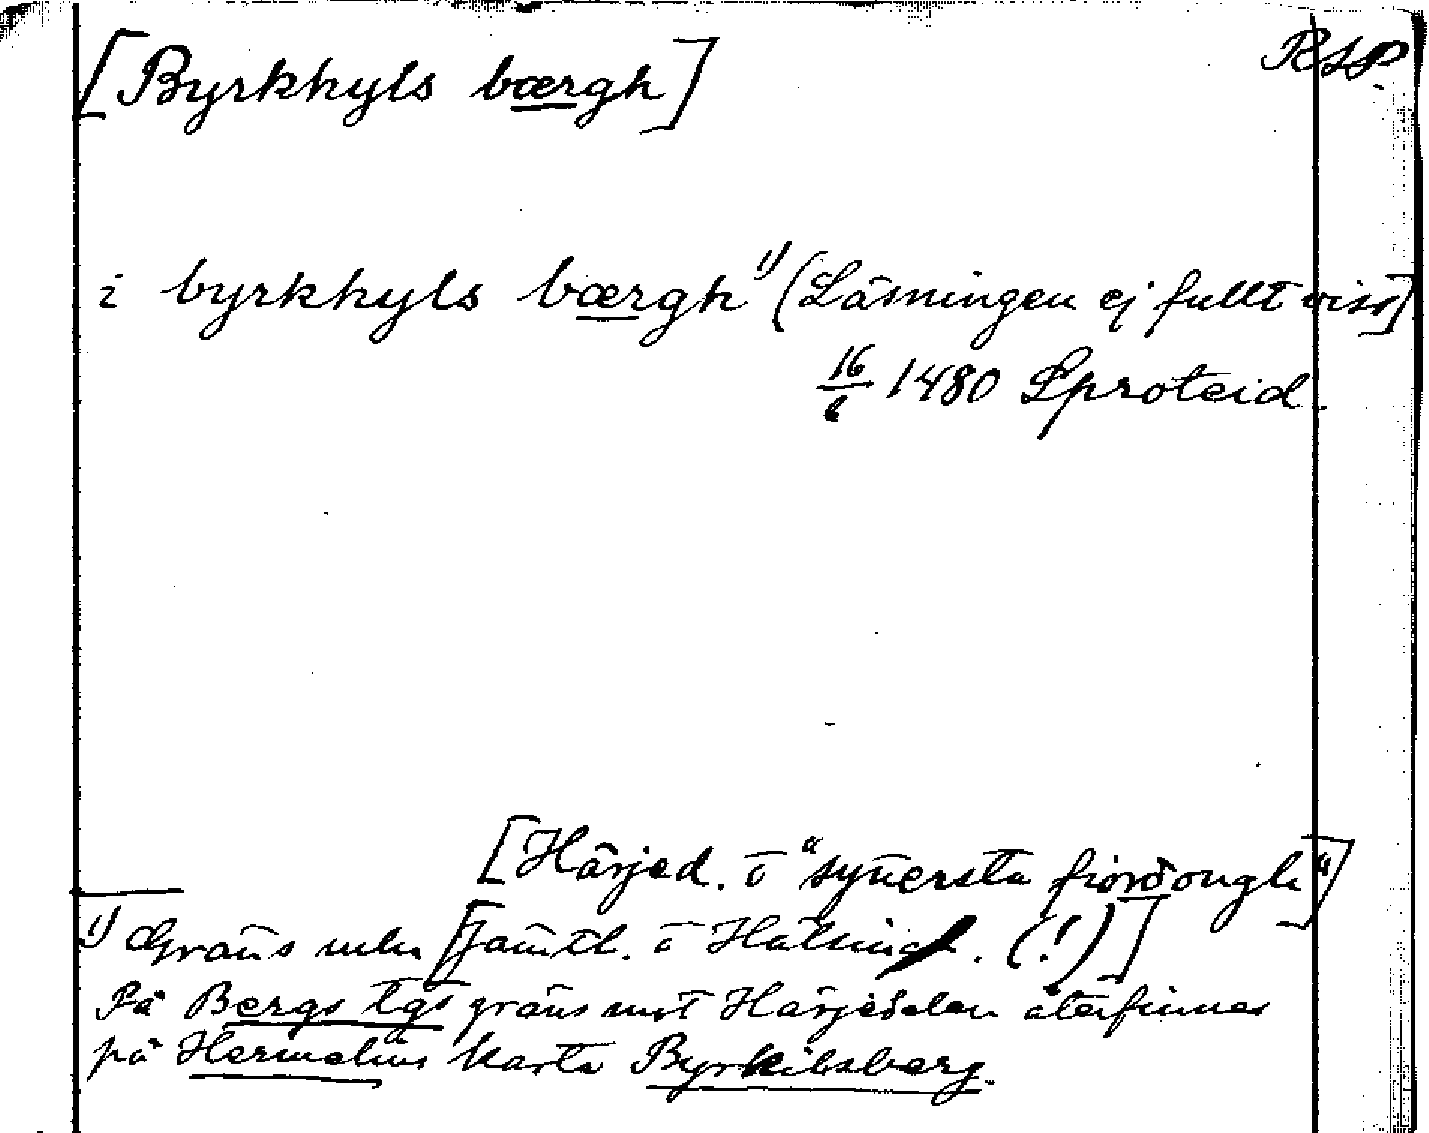 [Byrkhyls bærgh] RSP
i byrkhyls bærgh 1) (Läsningen ej fullt viss)
16/6 1480 Sproteid.
[Härjed. o "synersta fiordongh"]
1) Gräns mln [Jämtl. o Hälsingl. (!)]
På Bergs tgs gräns mot Härjedalen återfinnes
på Hermelins karta Byrkilsberg.